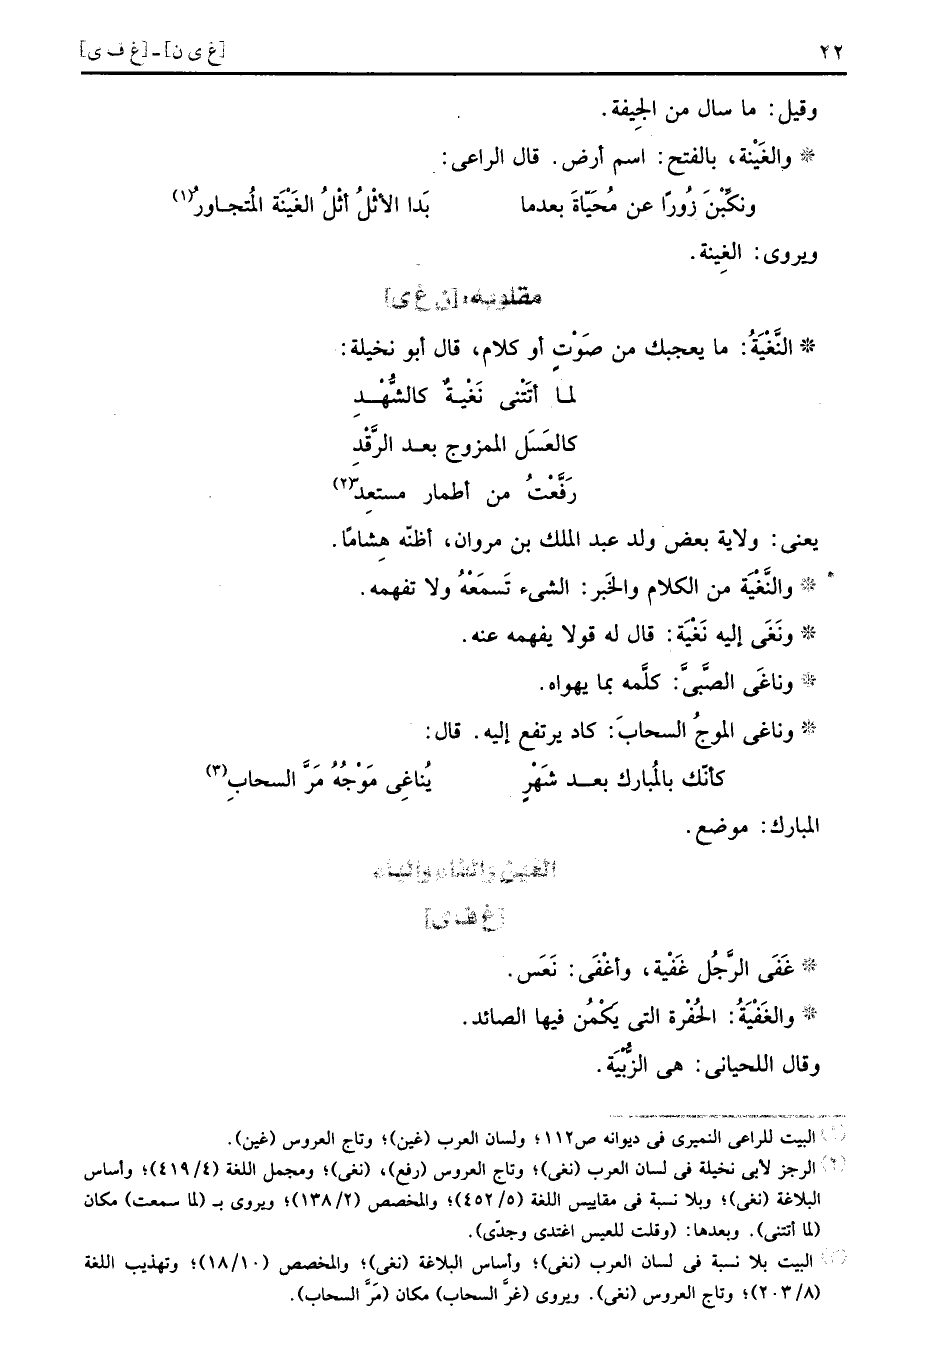 ٤٢ [غ ى ن] ـ [غ ف ى]
وقيل: ما سال من الجِيفة.
* والغَيْنة، بالفتح: اسم أرض. قال الراعى:
ونكَّبْنَ زُورًا عن مُحَيّاةَ بعدما بَدا الأثْلُ أثْلُ الغَيْنَة المُتجـاورُ(١)
ويروى: الغِينة.
مقلوبه: [ن غ ى]
* النَّغْيَةُ: ما يعجبك من صَوْتٍ أو كلام، قال أبو نخيلة:
لمـا أتَتْنى نَغْيـةٌ كالشُّهْـدِ
كالعَسَل الممزوج بعـد الرَّقْدِ
رَفَّعْتُ من أطمار مستعدِ(٢)
يعنى: ولاية بعض ولد عبد الملك بن مروان، أظنّه هِشامًا.
* والنَّغْيَة من الكلام والخَبر: الشىء تَسمَعْهُ ولا تفهمه.
* ونَغَى إليه نَغْيَة: قال له قولا يفهمه عنه.
* وناغَى الصَّبىَّ: كلَّمه بما يهواه.
* وناغى الموجُ السحابَ: كاد يرتفع إليه. قال:
كأنّك بالمُبارك بعـد شَهْرٍ يُناغِى مَوْجُهُ مَرَّ السحابِ(٣)
المبارك: موضع.
الغين والفاء والياء
[غ ف ى]
* غَفَى الرَّجُل غَفْية، وأغْفَى: نَعَس.
* والغَفْيَةُ: الحُفْرة التى يَكْمُن فيها الصائد.
وقال اللحيانى: هى الزُّبْيَة.
(١) البيت للراعى النميرى فى ديوانه ص١١٢؛ ولسان العرب (غين)؛ وتاج العروس (غين).
(٢) الرجز لأبى نخيلة فى لسان العرب (نغى)؛ وتاج العروس (رفع)، (نغى)؛ ومجمل اللغة (٤/ ٤١٩)؛ وأساس
البلاغة (نغى)؛ وبلا نسبة فى مقاييس اللغة (٥/ ٤٥٢)؛ والمخصص (٢/ ١٣٨)؛ ويروى بـ (لما سمعت) مكان
(لما أتتنى). وبعدها: (وقلت للعيس اغتدى وجدّى).
(٣) البيت بلا نسبة فى لسان العرب (نغى)؛ وأساس البلاغة (نغى)؛ والمخصص (١٠/ ١٨)؛ وتهذيب اللغة
(٨/ ٢٠٣)؛ وتاج العروس (نغى). ويروى (غرَّ السحاب) مكان (مَرَّ السحاب).